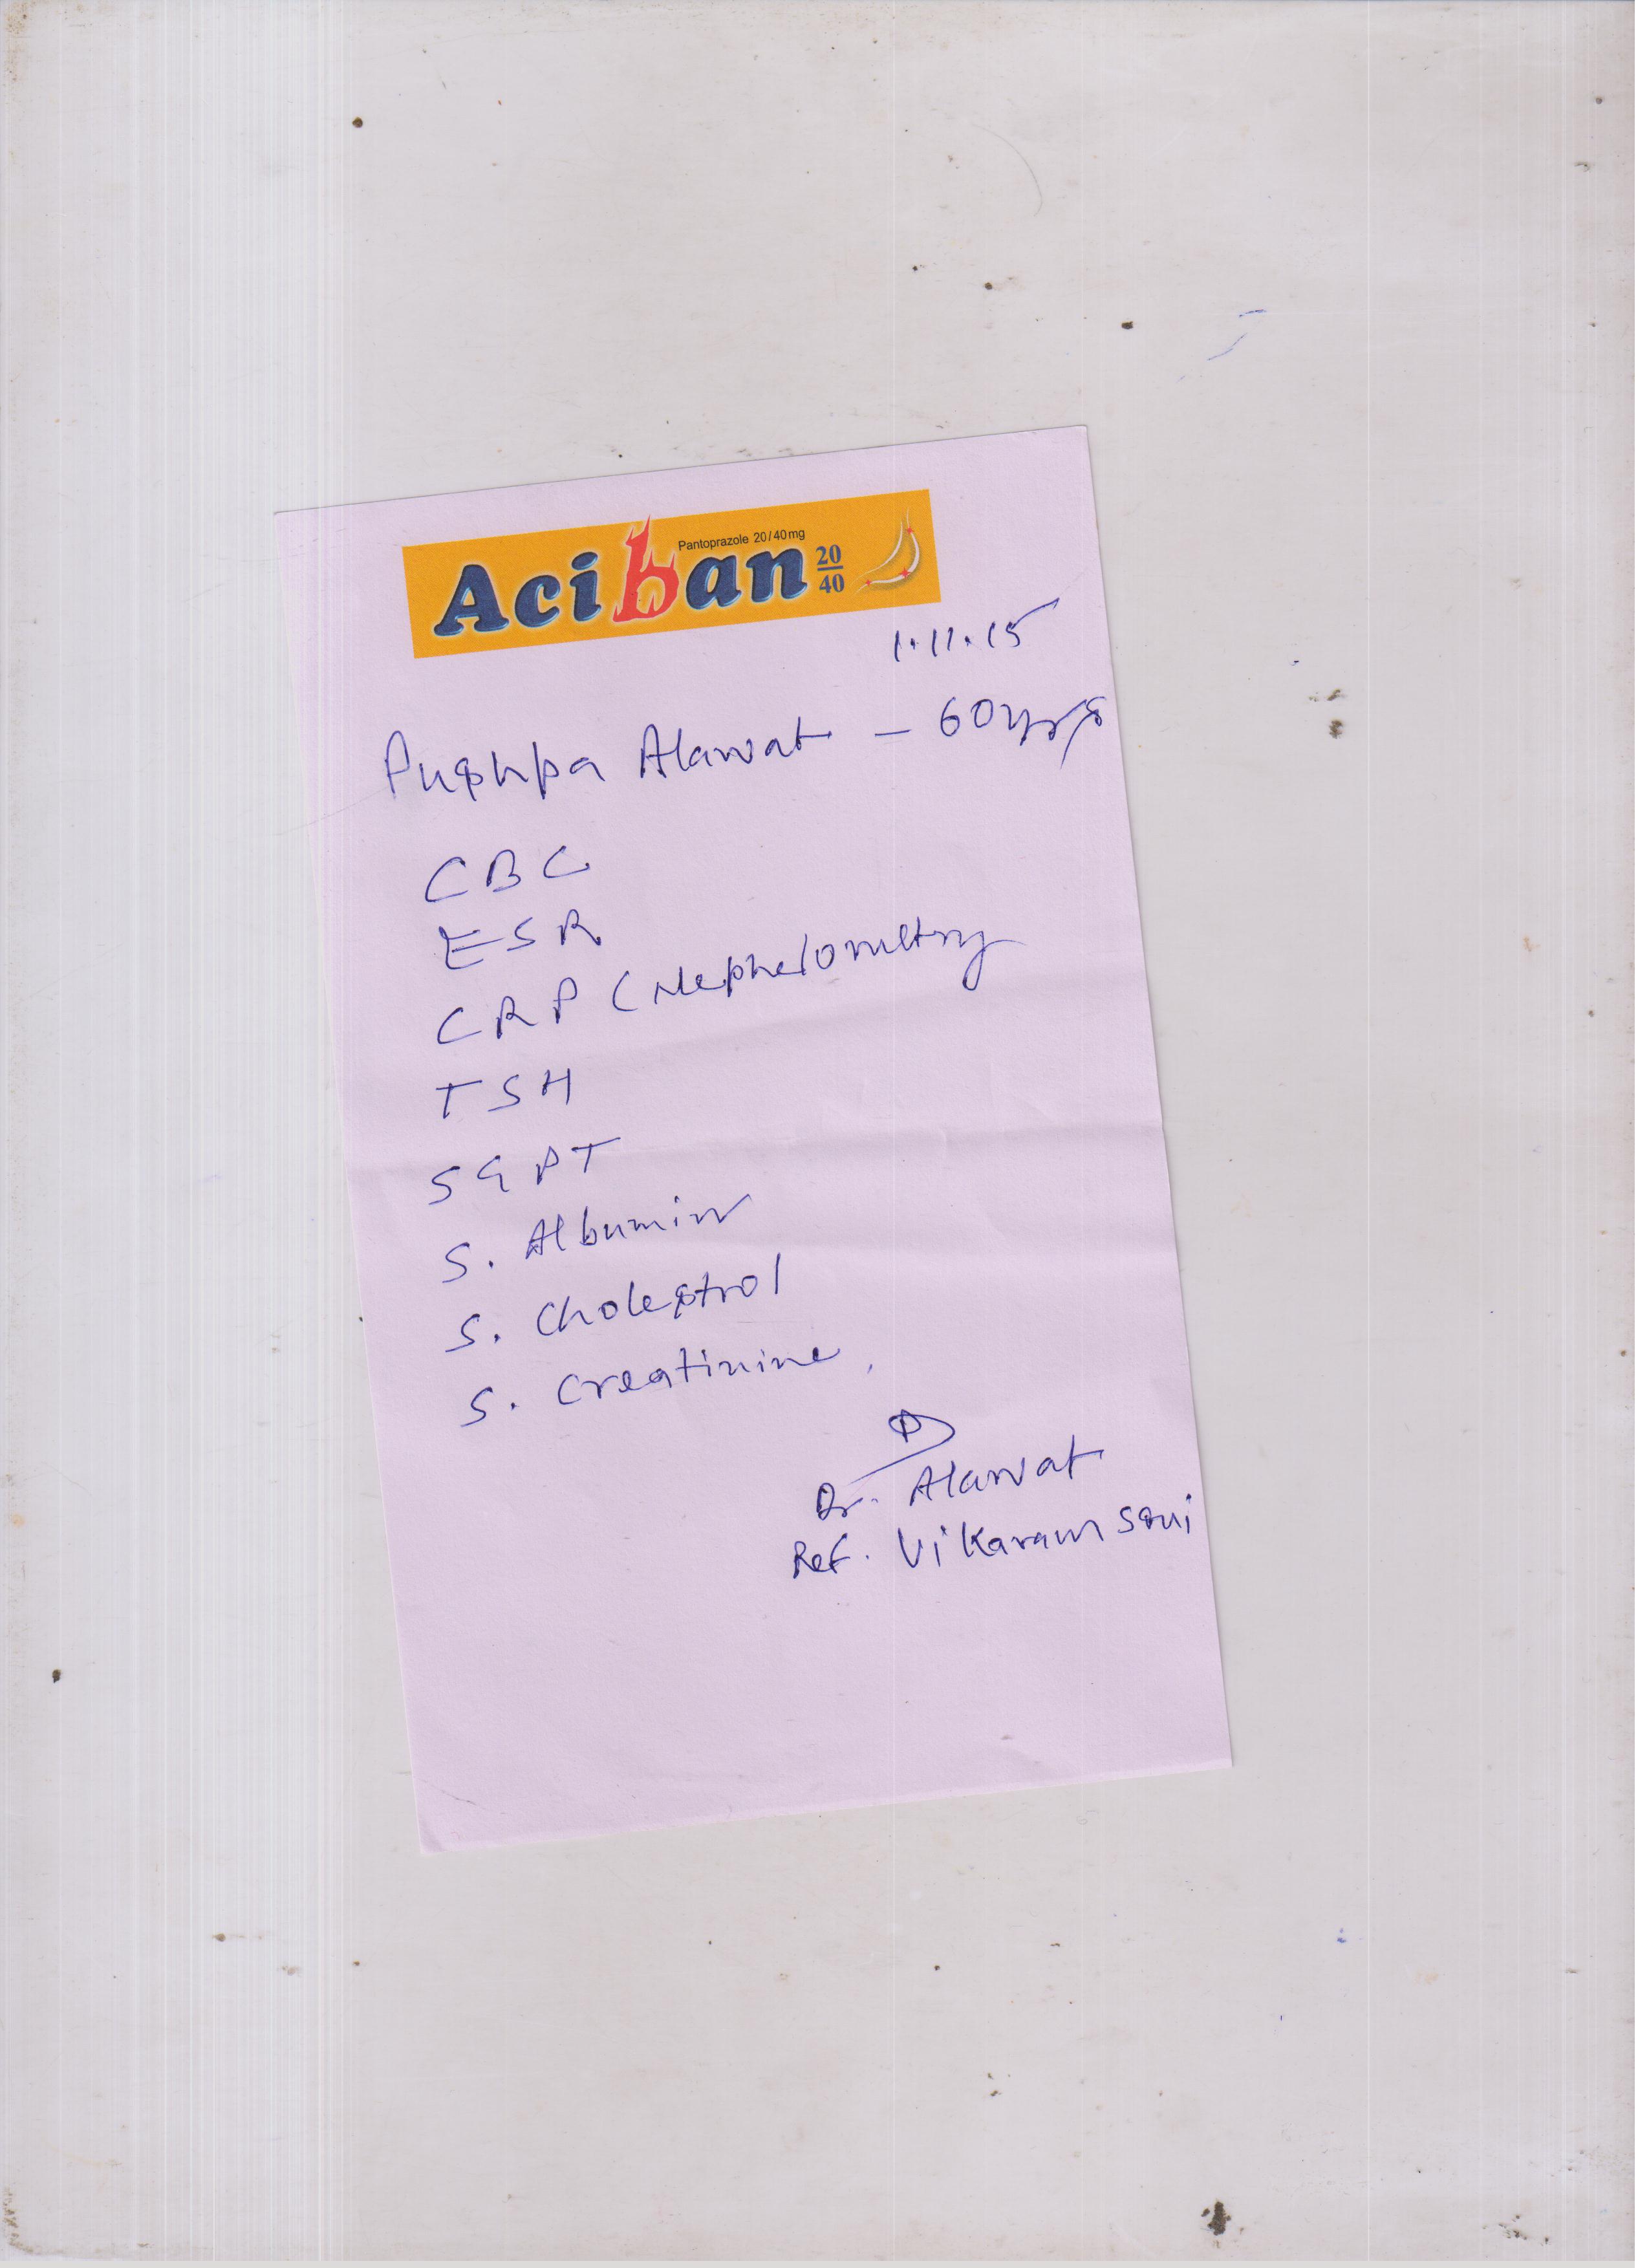 Pantoprazole 20/40mg
Aciban 20/40
1.11.15
Pushpa Alawat - 60 yrs
CBC
ESR
CRP (Nephelometry
TSH
SGPT
S. Albumin
S. Cholestrol
S. Creatinine
Dr. Alawat
Ref. Vikaram Soni